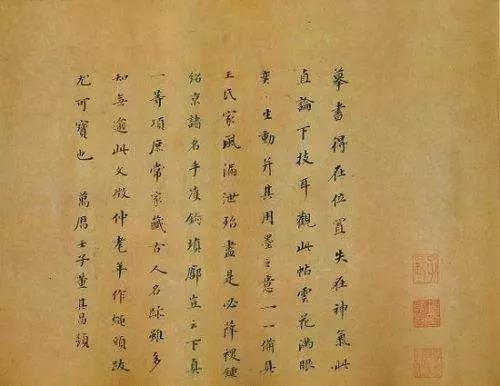 摹書得在位置失在神氣此
自論下技耳觀此帖雲花滿眼
奕〻生動并其用墨之意一一備具
王氏家風漏泄殆盡是必薛稷鍾
紹京諸名手雙鉤填廓豈云下真
一等項庶常家藏古人名跡雖多
知無逾此文徵仲老年作蠅頭跋
尤可寶也 萬曆壬子董其昌題